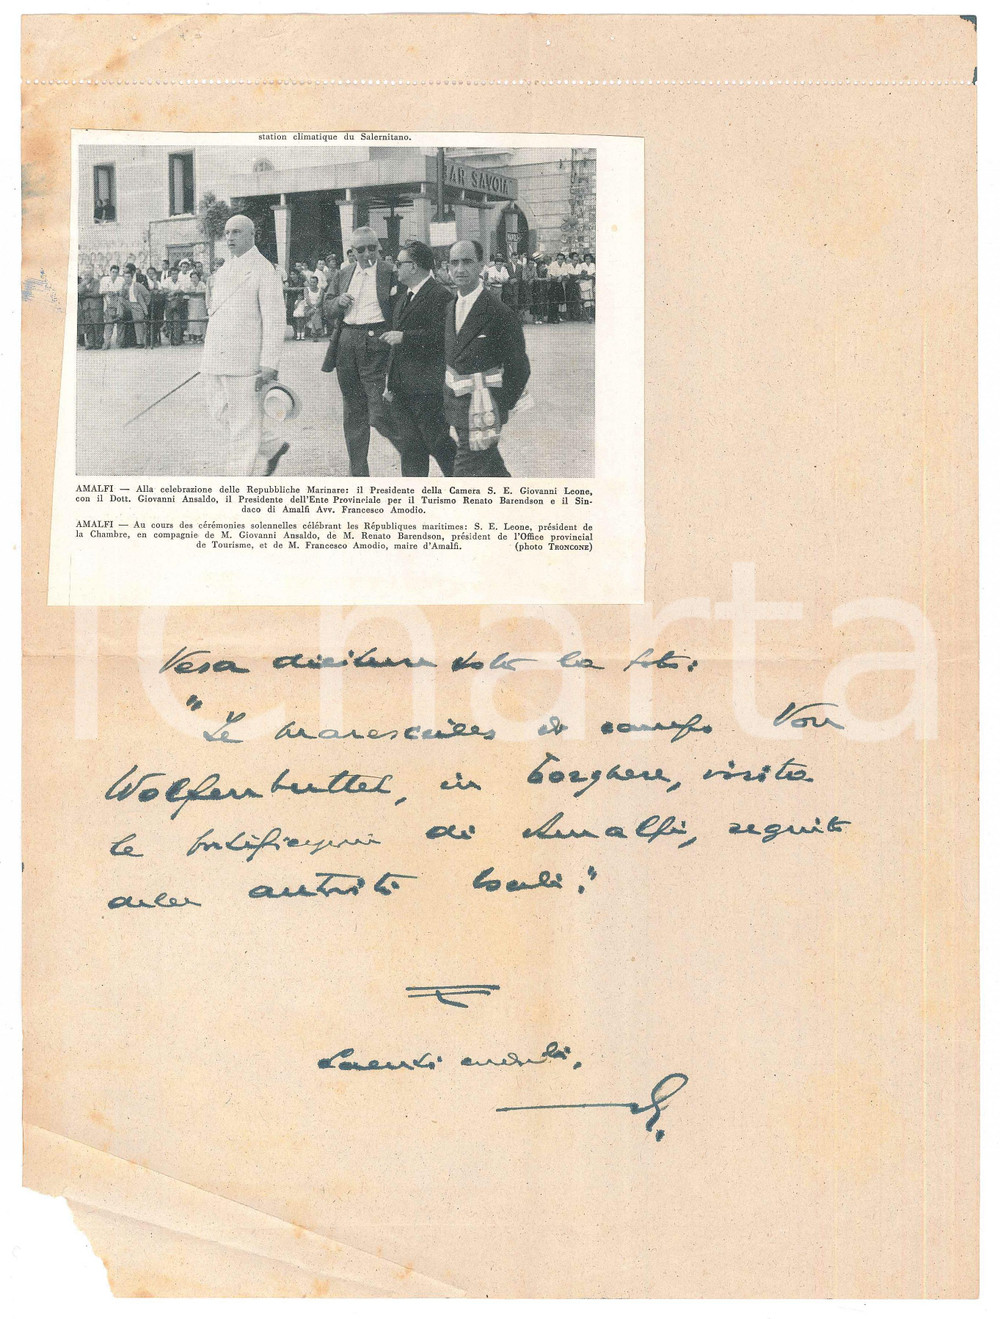 station climatique du Salernitano.
BAR SAVOIA
AMALFI — Alla celebrazione delle Repubbliche Marinare: il Presidente della Camera S. E. Giovanni Leone,
con il Dott. Giovanni Ansaldo, il Presidente dell'Ente Provinciale per il Turismo Renato Barendson e il Sin-
daco di Amalfi Avv. Francesco Amodio.
AMALFI — Au cours des cérémonies solennelles célébrant les Républiques maritimes: S. E. Leone, président de
la Chambre, en compagnie de M. Giovanni Ansaldo, de M. Renato Barendson, président de l'Office provincial
de Tourisme, et de M. Francesco Amodio, maire d'Amalfi. (photo TRONCONE)
iCharta
Vera dicitura sotto la foto:
"Il maresciallo di campo Von
Wolfenbuttel, in borghese, visita
le fortificazioni di Amalfi, seguito
dalle autorità locali."